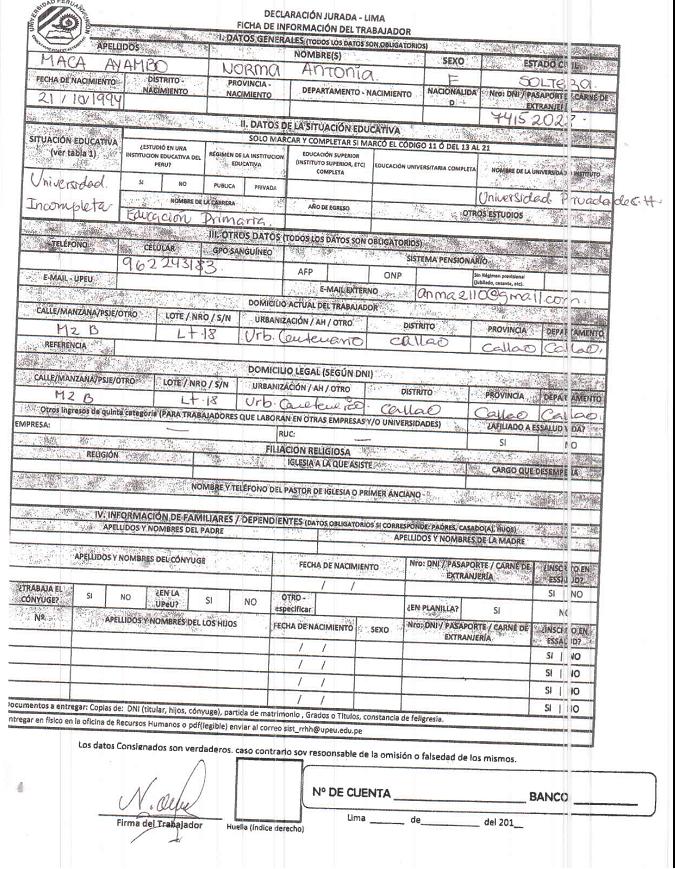 UNIVERSIDAD PERUANA UNIÓN
DECLARACIÓN JURADA - LIMA
FICHA DE INFORMACIÓN DEL TRABAJADOR
I. DATOS GENERALES (TODOS LOS DATOS SON OBLIGATORIOS)
APELLIDOS NOMBRE(S) SEXO ESTADO CIVIL
MACA AYAMBO NORMA Antonia F SOLTERA
FECHA DE NACIMIENTO DISTRITO - NACIMIENTO PROVINCIA - NACIMIENTO DEPARTAMENTO - NACIMIENTO NACIONALIDAD Nro: DNI / PASAPORTE / CARNÉ DE EXTRANJERÍA
21 / 10 / 1994
II. DATOS DE LA SITUACIÓN EDUCATIVA
SITUACIÓN EDUCATIVA (ver tabla 1) SOLO MARCAR Y COMPLETAR SI MARCÓ EL CÓDIGO 11 Ó DEL 13 AL 21
¿ESTUDIÓ EN UNA INSTITUCION EDUCATIVA DEL PERU? RÉGIMEN DE LA INSTITUCION EDUCATIVA EDUCACIÓN SUPERIOR (INSTITUTO SUPERIOR, ETC) COMPLETA EDUCACIÓN UNIVERSITARIA COMPLETA NOMBRE DE LA UNIVERSIDAD INSTITUTO
Universidad Incompleta SI NO PUBLICA PRIVADA Universidad Privada de S.H
NOMBRE DE LA CARRERA AÑO DE EGRESO OTROS ESTUDIOS
Educación Primaria
III. OTROS DATOS (TODOS LOS DATOS SON OBLIGATORIOS)
TELÉFONO CELULAR GPO SANGUÍNEO SISTEMA PENSIONARIO
962243183 AFP ONP Sin Régimen previsional (Jubilado, cesante, etc).
E-MAIL - UPEU E-MAIL EXTERNO anma2110@gmail.com
DOMICILIO ACTUAL DEL TRABAJADOR
CALLE/MANZANA/PSJE/OTRO LOTE / NRO / S/N URBANIZACIÓN / AH / OTRO DISTRITO PROVINCIA DEPARTAMENTO
Mz B Lt-18 Urb. Centenario Callao Callao Callao.
REFERENCIA
DOMICILIO LEGAL (SEGÚN DNI)
CALLE/MANZANA/PSJE/OTRO LOTE / NRO / S/N URBANIZACIÓN / AH / OTRO DISTRITO PROVINCIA DEPARTAMENTO
Mz B Lt-18 Urb. Callao Callao Callao.
Otros ingresos de quinta categoría (PARA TRABAJADORES QUE LABORAN EN OTRAS EMPRESAS Y/O UNIVERSIDADES) ¿AFILIADO A ESSALUD VIDA?
EMPRESA: — RUC: — SI NO
FILIACIÓN RELIGIOSA
RELIGIÓN IGLESIA A LA QUE ASISTE CARGO QUE DESEMPEÑA
NOMBRE Y TELÉFONO DEL PASTOR DE IGLESIA O PRIMER ANCIANO
IV. INFORMACIÓN DE FAMILIARES / DEPENDIENTES (DATOS OBLIGATORIOS SI CORRESPONDE: PADRES, CASADO(A), HIJOS)
APELLIDOS Y NOMBRES DEL PADRE APELLIDOS Y NOMBRES DE LA MADRE
APELLIDOS Y NOMBRES DEL CÓNYUGE FECHA DE NACIMIENTO Nro: DNI / PASAPORTE / CARNÉ DE EXTRANJERÍA ¿INSCRITO EN ESSALUD?
/ / SI NO
¿TRABAJA EL CÓNYUGE? SI NO ¿EN LA UPeU? SI NO OTRO - especificar ¿EN PLANILLA? SI NO
Nº. APELLIDOS Y NOMBRES DEL LOS HIJOS FECHA DE NACIMIENTO SEXO Nro: DNI / PASAPORTE / CARNÉ DE EXTRANJERÍA ¿INSCRITO EN ESSALUD?
/ / SI NO
/ / SI NO
/ / SI NO
/ / SI NO
Documentos a entregar: Copias de: DNI (titular, hijos, cónyuge), partida de matrimonio , Grados o Títulos, constancia de feligresia.
ntregar en físico en la oficina de Recursos Humanos o pdf(legible) enviar al correo sist_rrhh@upeu.edu.pe
Los datos Consignados son verdaderos. caso contrario soy responsable de la omisión o falsedad de los mismos.
Nº DE CUENTA BANCO
Firma del Trabajador Huella (índice derecho) Lima de del 201